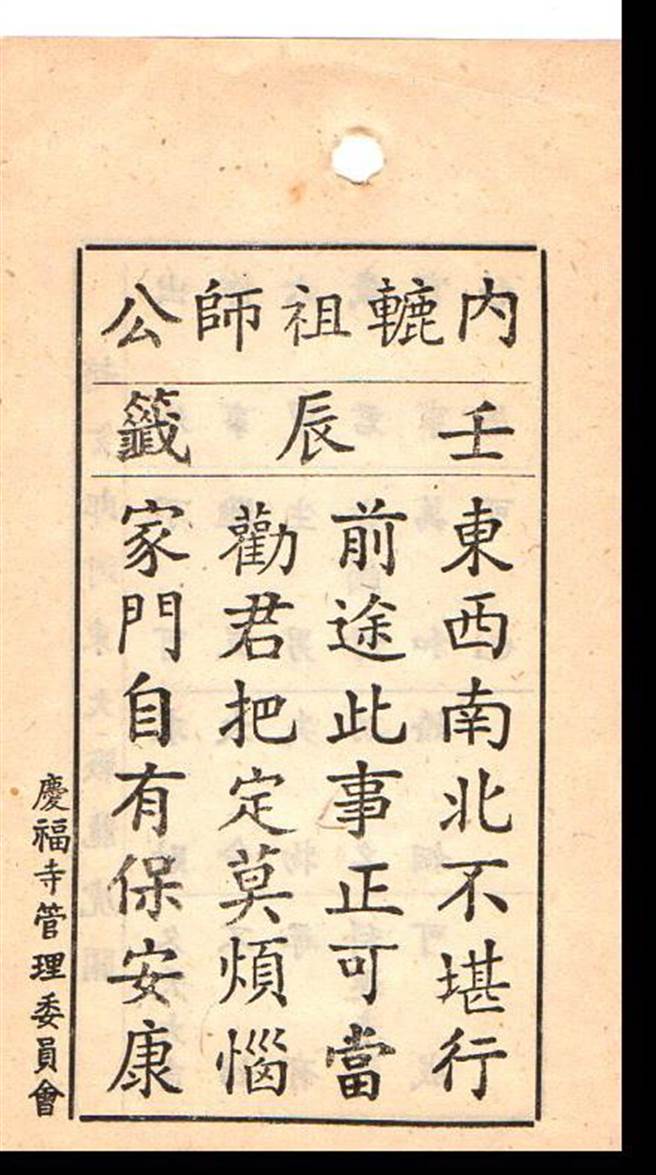 内轆祖師公
壬辰籤
東西南北不堪行
前途此事正可當
勸君把定莫煩惱
家門自有保安康
慶福寺管理委員會